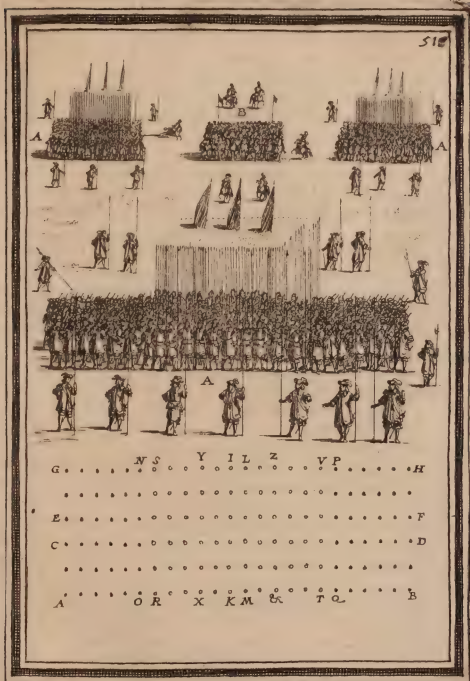 B
A A
A
N S Y I L Z V P
G H
E F
C D
A O R X K M & T Q B